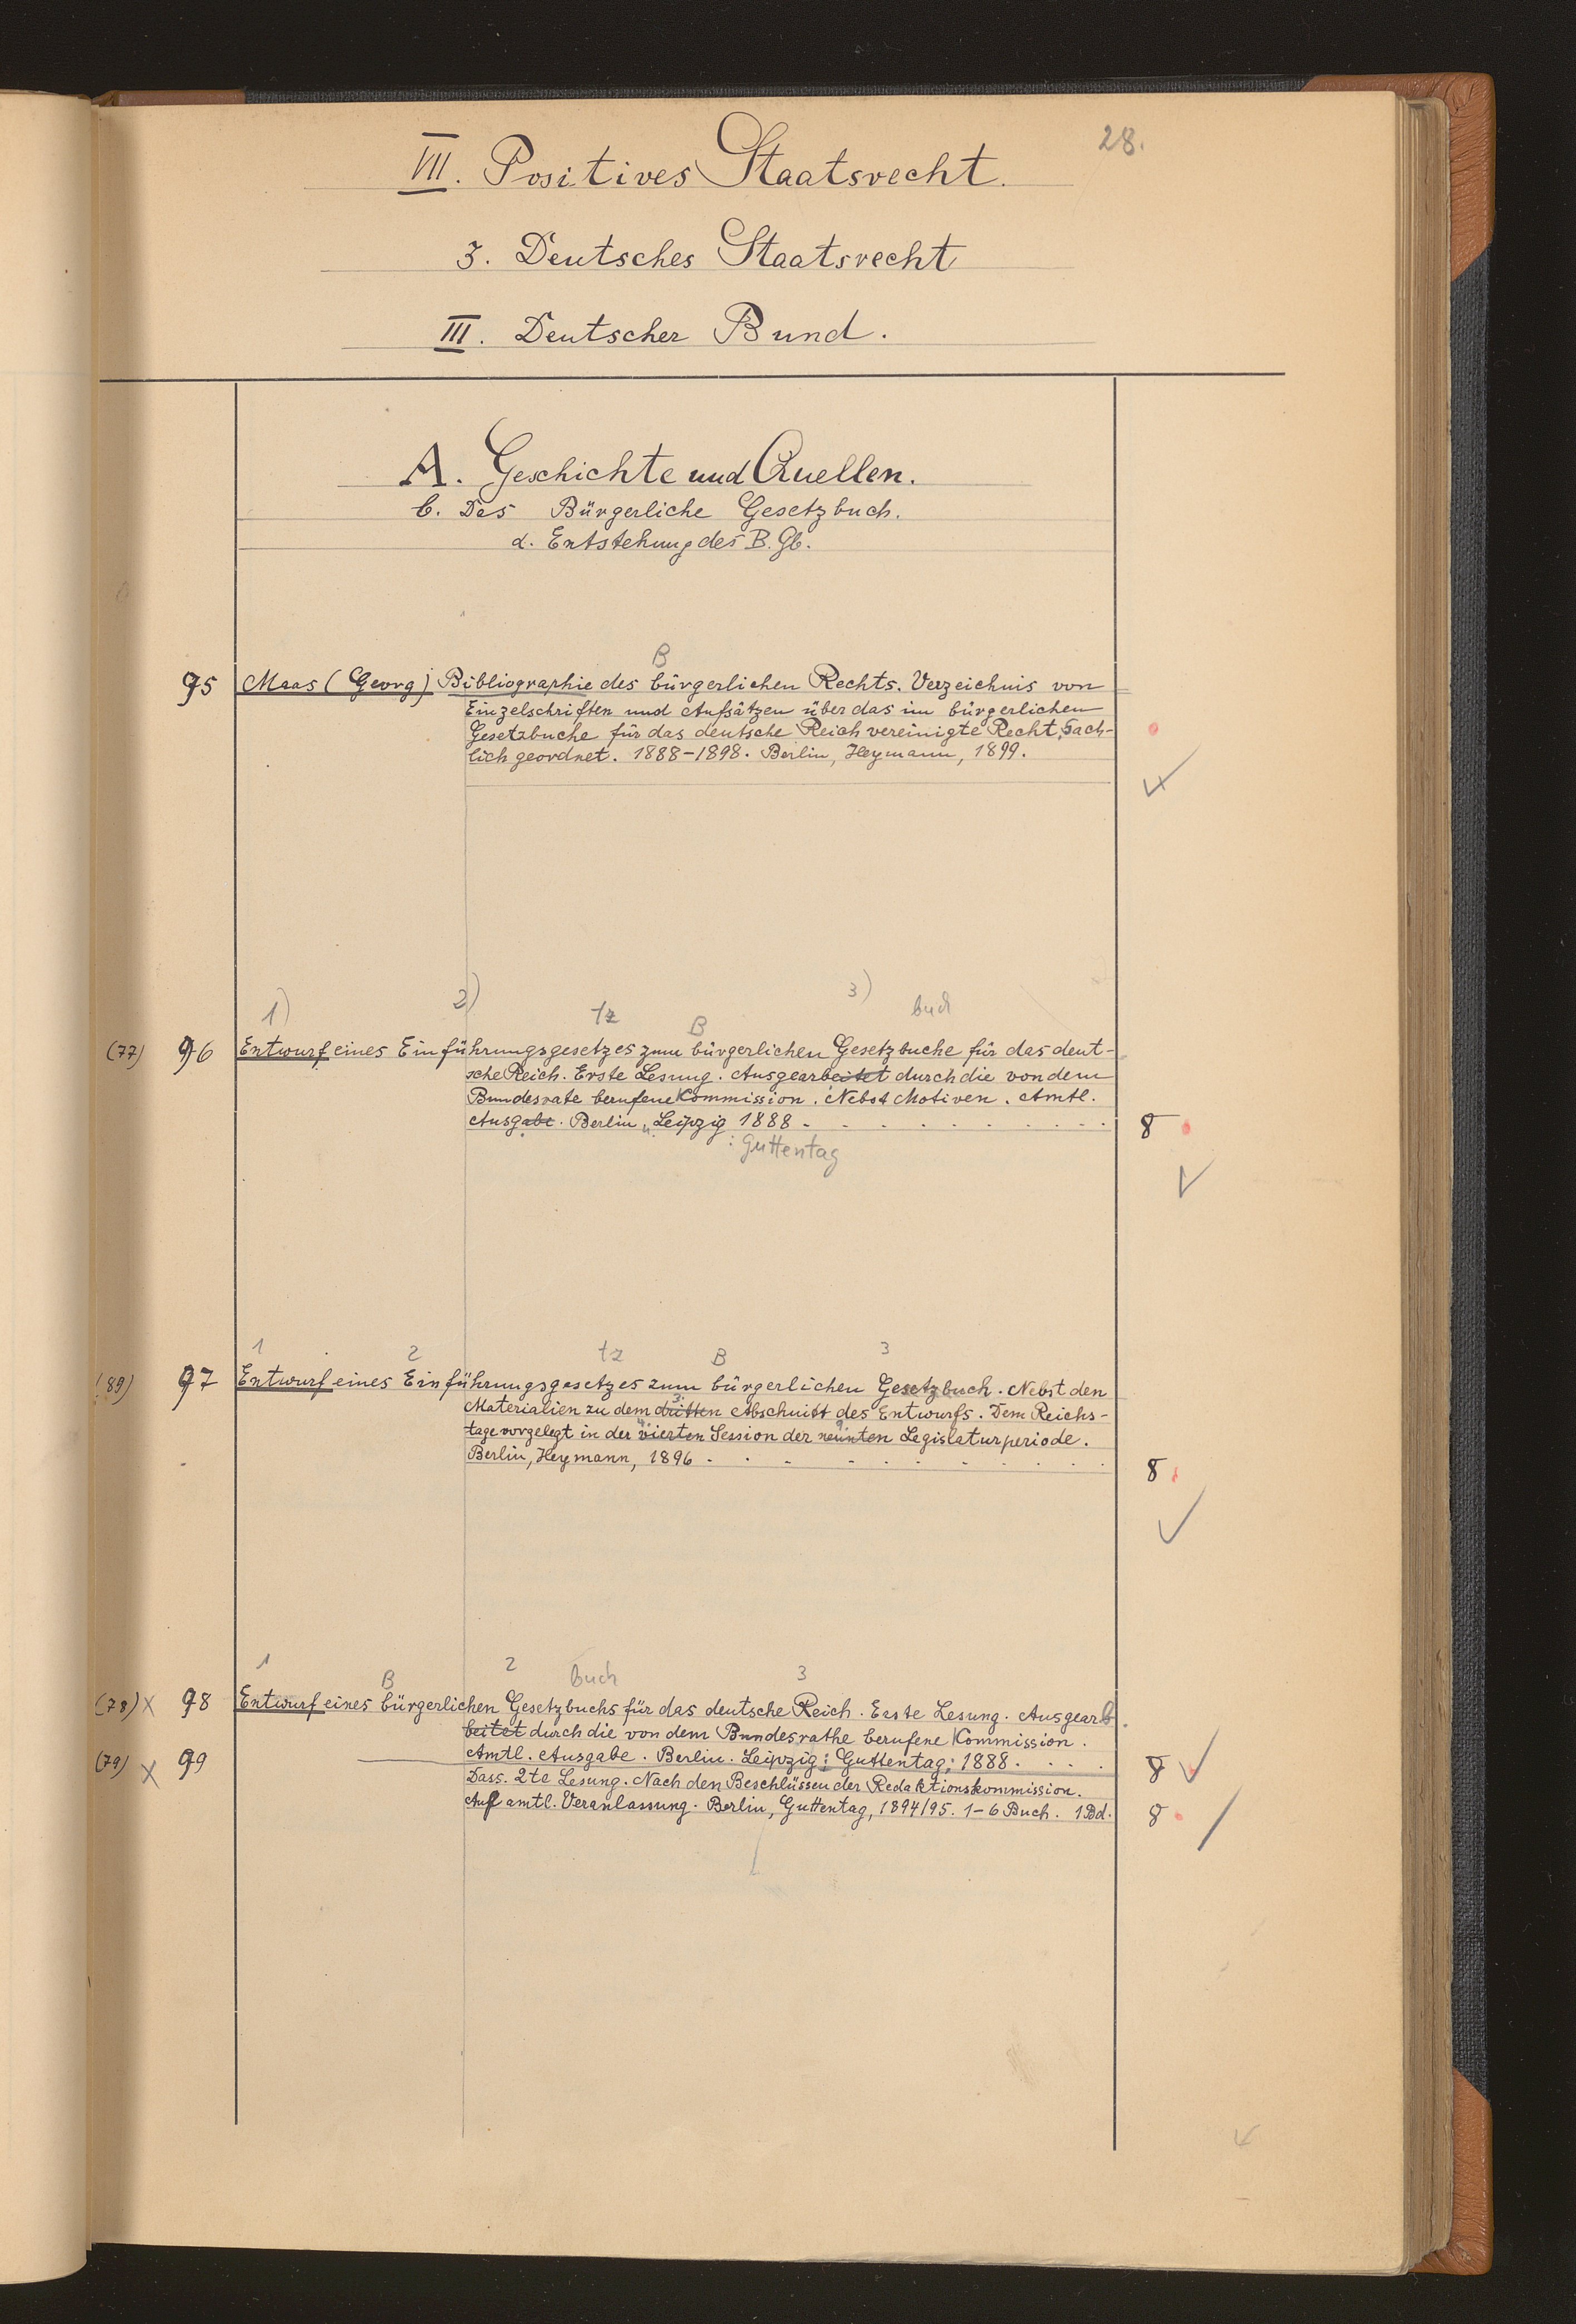 28.
VII. Positives Staatsrecht.
3. Deutsches Staatsrecht
III. Deutscher Bund.
A. Geschichte und Quellen.
b. Das Bürgerliche Gesetzbuch.
α. Entstehung des B. Gb.
B
95 Maas (Georg) Bibliographie des bürgerlichen Rechts. Verzeichnis von
Einzelschriften und Aufsätzen über das im bürgerlichen
Gesetzbuche für das deutsche Reich vereinigte Recht, Sach-
lich geordnet. 1888-1898. Berlin, Heymann, 1899.
1) 2) tz B 3) buch
(77) 96 Entwurf eines Einführungsgesetzes zum bürgerlichen Gesetzbuche für das deut-
sche Reich. Erste Lesung. Ausgearbeitet durch die von dem
Bundesrate berufene Kommission. Nebst Motiven. Amtl.
Ausgabe. Berlin u. Leipzig 1888 - 8
: Guttentag
1 2 tz B 3
(89) 97 Entwurf eines Einführungsgesetzes zum bürgerlichen Gesetzbuch. Nebst den
Materialien zu dem dritten 3. Abschnitt des Entwurfs. Dem Reichs-
tage vorgelegt in der vierten 4. Session der neunten 9. Legislaturperiode.
Berlin, Heymann, 1896 - 8
1 B 2 buch 3
(78) x 98 Entwurf eines bürgerlichen Gesetzbuchs für das deutsche Reich. Erste Lesung. Ausgearb.
beitet durch die von dem Bundesrathe berufene Kommission.
Amtl. Ausgabe. Berlin. Leipzig: Guttentag: 1888. 8
(79) x 99 ——— Dass. 2te Lesung. Nach den Beschlüssen der Redaktionskommission.
Auf amtl. Veranlassung. Berlin, Guttentag, 1894/95. 1-6 Buch. 1 Bd. 8